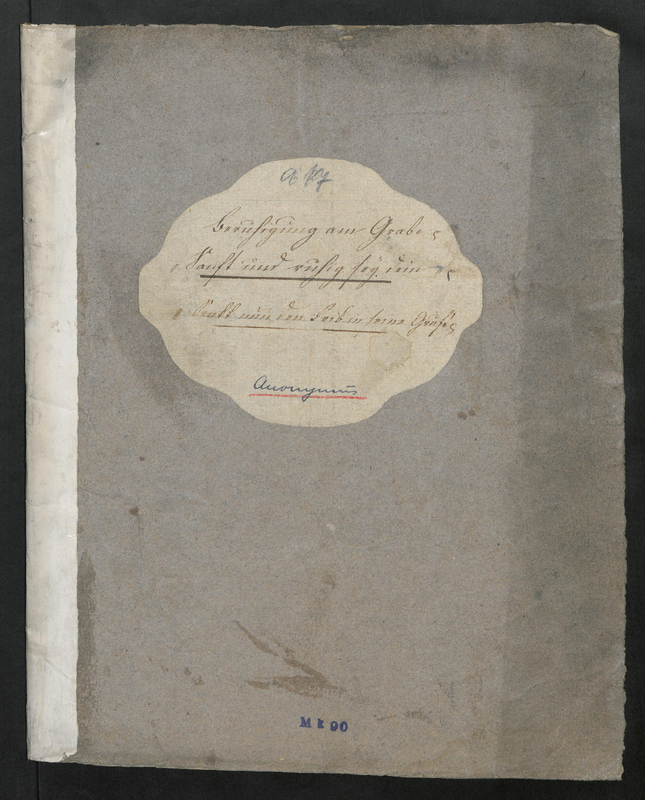 Beruhigung am Grabe
Sanft und ruhig sey dein
Senkt nun den Leib in seine Grufft
Anonymus
M k 90